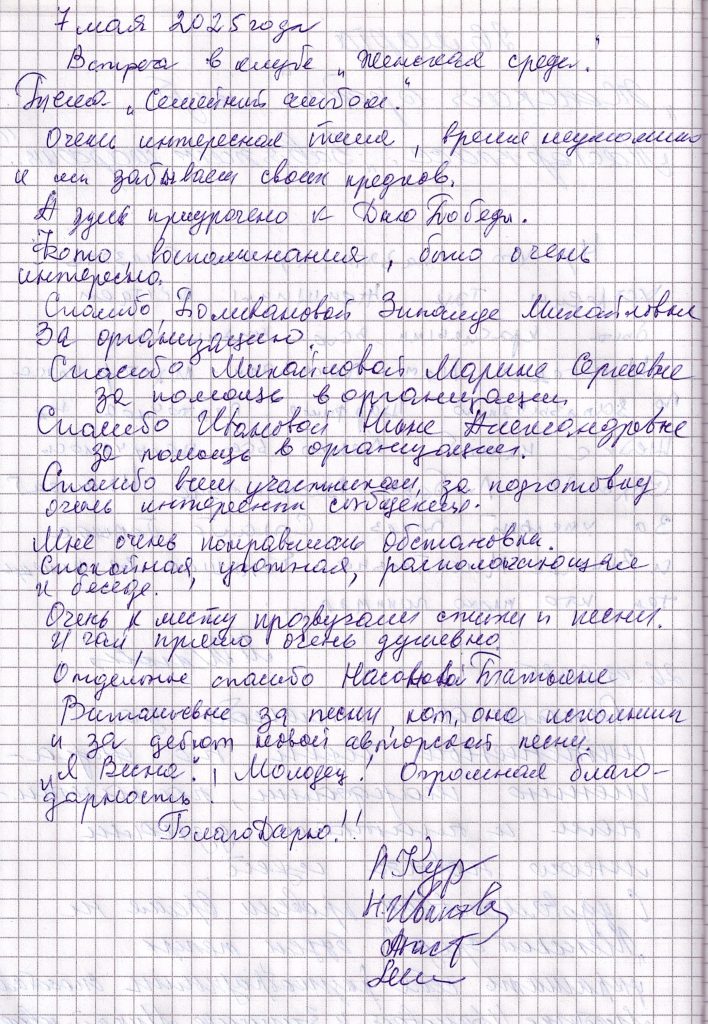 7 мая 2025 года
Встреча в клубе „Женская среда."
Тема „Семейный альбом."
Очень интересная тема, время неумолимо
и мы забываем своих предков.
А здесь приурочено к Дню Победы.
Фото, воспоминания, было очень
интересно.
Спасибо Боливановой Зинаиде Михайловне
За организацию.
Спасибо Михайловой Марине Сергеевне
за помощь в организации
Спасибо Ивановой Нине Александровне
за помощь в организации.
Спасибо всем участникам, за подготовку
очень интересных сообщений.
Мне очень понравилась обстановка.
Спокойная, уютная, располагающая
к беседе.
Очень к месту прозвучали стихи и песни.
И чай, прямо очень душевно
Отдельное спасибо Насоновой Татьяне
Витальевне за песни, кот. она исполнила
и за дебют новой авторской песни.
„Я Весна", Молодец! Огромная благо-
дарность!
Благодарю!!
Н. Иванова